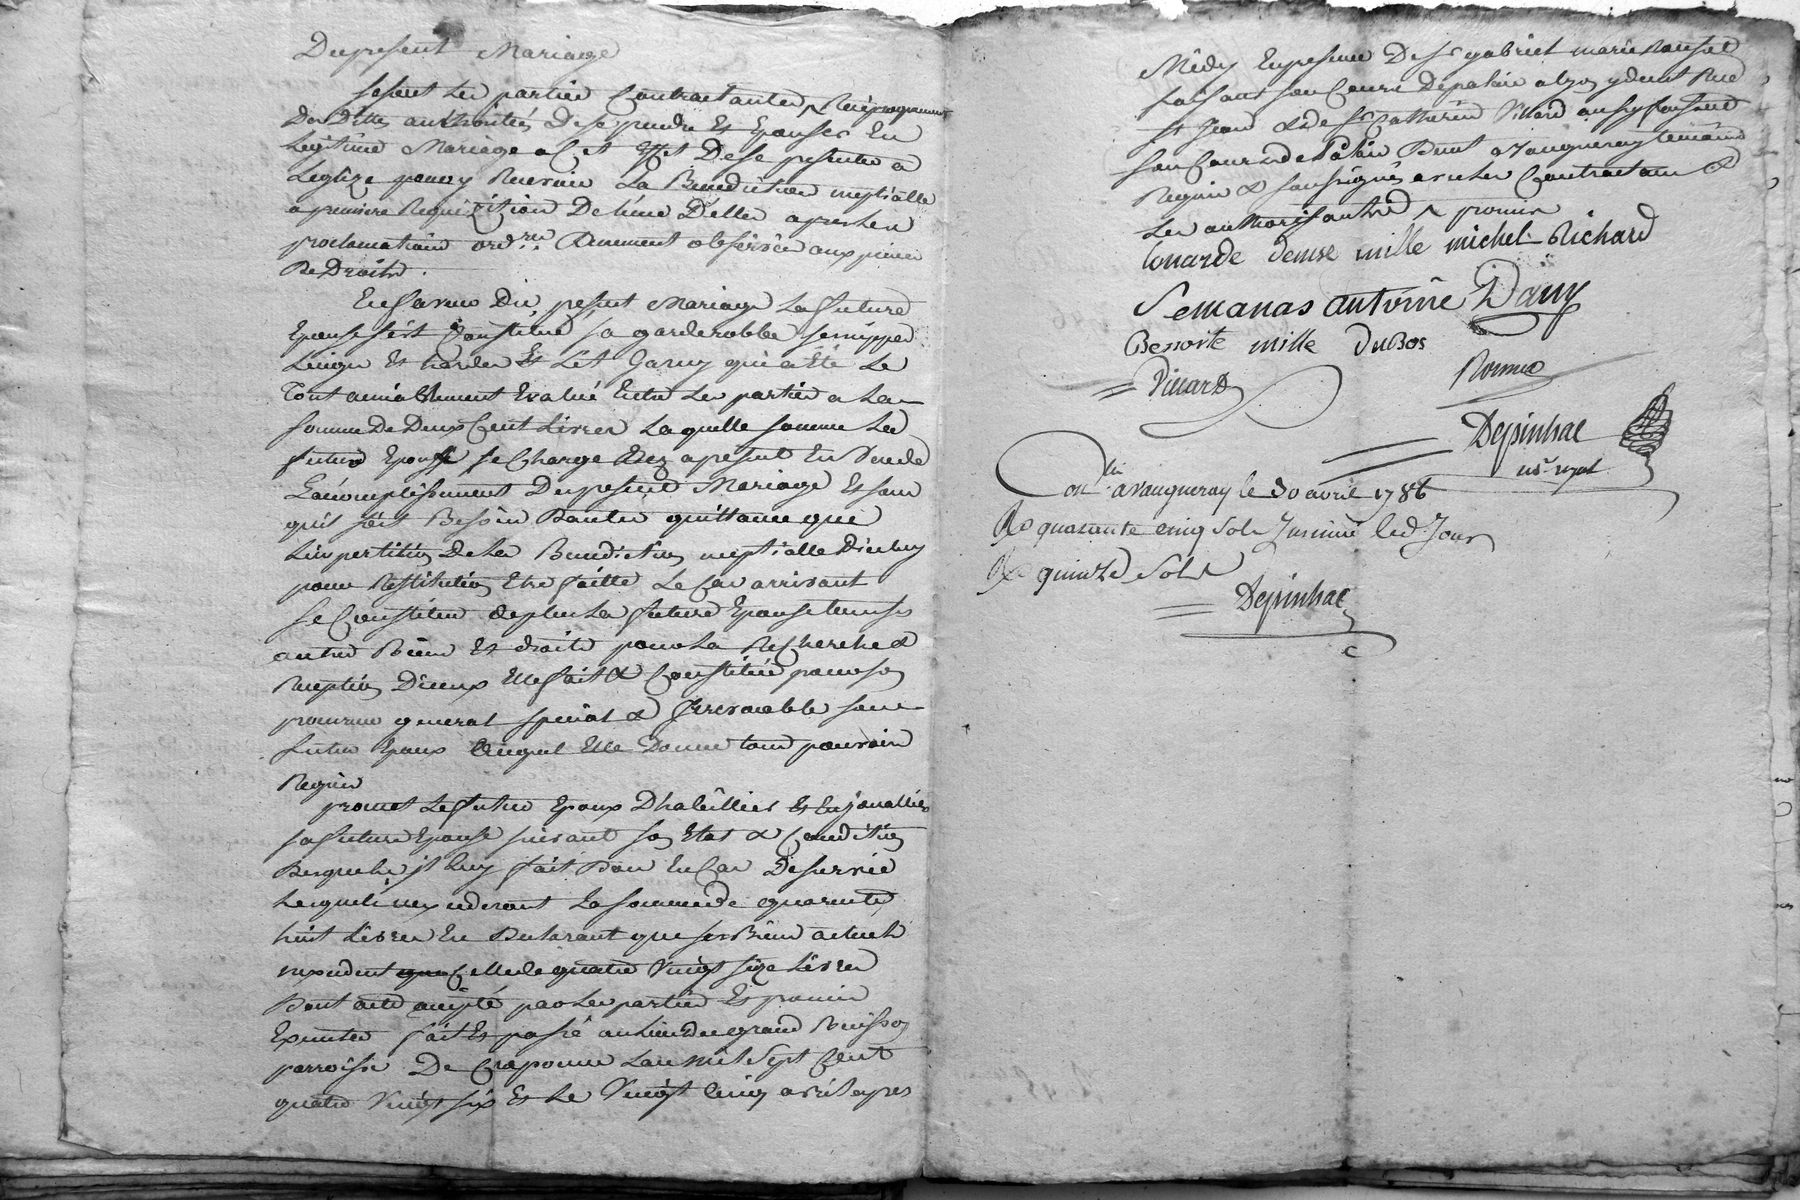 Du present Mariage
sesont les parties Contractantes Reciproquement
Des dittes authorités De se prendre Et Epouser En
Legitime Mariage a Cet Effet De se presenter a
Leglize pour y Recevoir La Benediction nuptialle
a premiere Requizition De Lune D'elles apres les
proclamations ordres Duement observées aux peines
De Droits.
En faveur Du present Mariage La future
Epouse s'est Constitué sa garderobbe ses nippes
Linges Et hardes Et Lit Garny qui a Eté Le
Tout amiablement Evalué Entre Les parties a La
somme De Deux Cent Livres Laquelle somme Le
futur Epoux se Charge Dez apresent En Vue de
Laccomplissement Du present Mariage Et sans
quil soit Besoin Dautre quittance que
Limpertition De La Benediction nuptialle Dicelluy
pour Restitution Etre faitte Le Cas arrivant
se Constitue de plus La future Epouse tous ses
autres Biens Et droits pour La Recherche &
Reception Diceux Elle fait & Constitue pour son
procureur general special & Irrevocable son
futur Epoux auquel Elle Donne tous pouvoirs
Requis
promet Le futur Epoux D'habiller Et Enjoualler
sa future Epouse suivant son Etat & Condition
Desquels il Luy fait Don En Cas De survie
Lesquels nexcederont La somme de quarente
huit Livres En Declarant que ses Biens actuels
nexcedent Celle de quatre Vingt seize Livres
Dont acte accepté par Les parties Et promis
Executer fait Et passé au Lieu du grand Buisson
parroisse De Craponne Lan mil sept Cent
quatre Vingt six Et Le Vingt Cinq avril apres
Midy En presence De sr gabriel marie
faisant son Cours De palais a Lyon y demt Rue
st Jean & de sr Catherin Vittard aussy faisant
son Cours de Palais Demt a Vaugneray temoins
Requis & soussignés avec Les Contractans &
Les authorisants promis
Couarde denise mille michel Richard
Semanas antoine Dany
Benoite mille duBos
Depinhac
nre royal
Contlé a Vaugneray le 30 avril 1786
Rs quarante cinq sols Jnsinué led Jour
Rs quinze sols
Depinhac